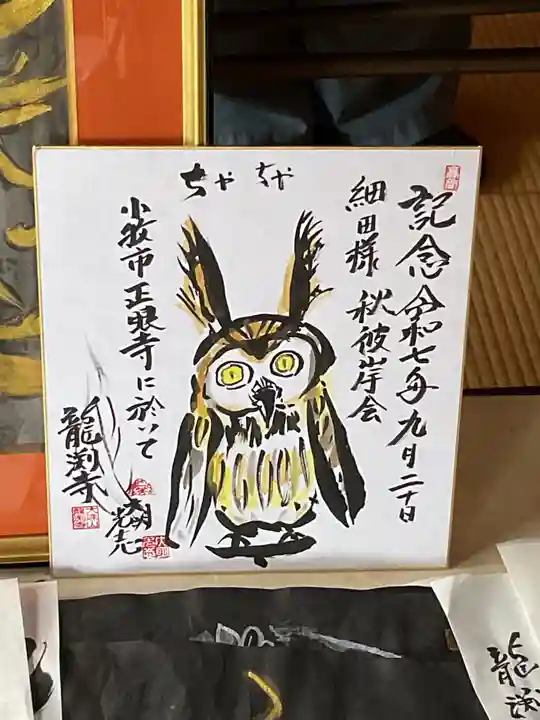 記念 令和七年九月二十日
細田様 秋彼岸会
ちゃちゃ
小牧市正眼寺に於いて
龍渕寺
龍